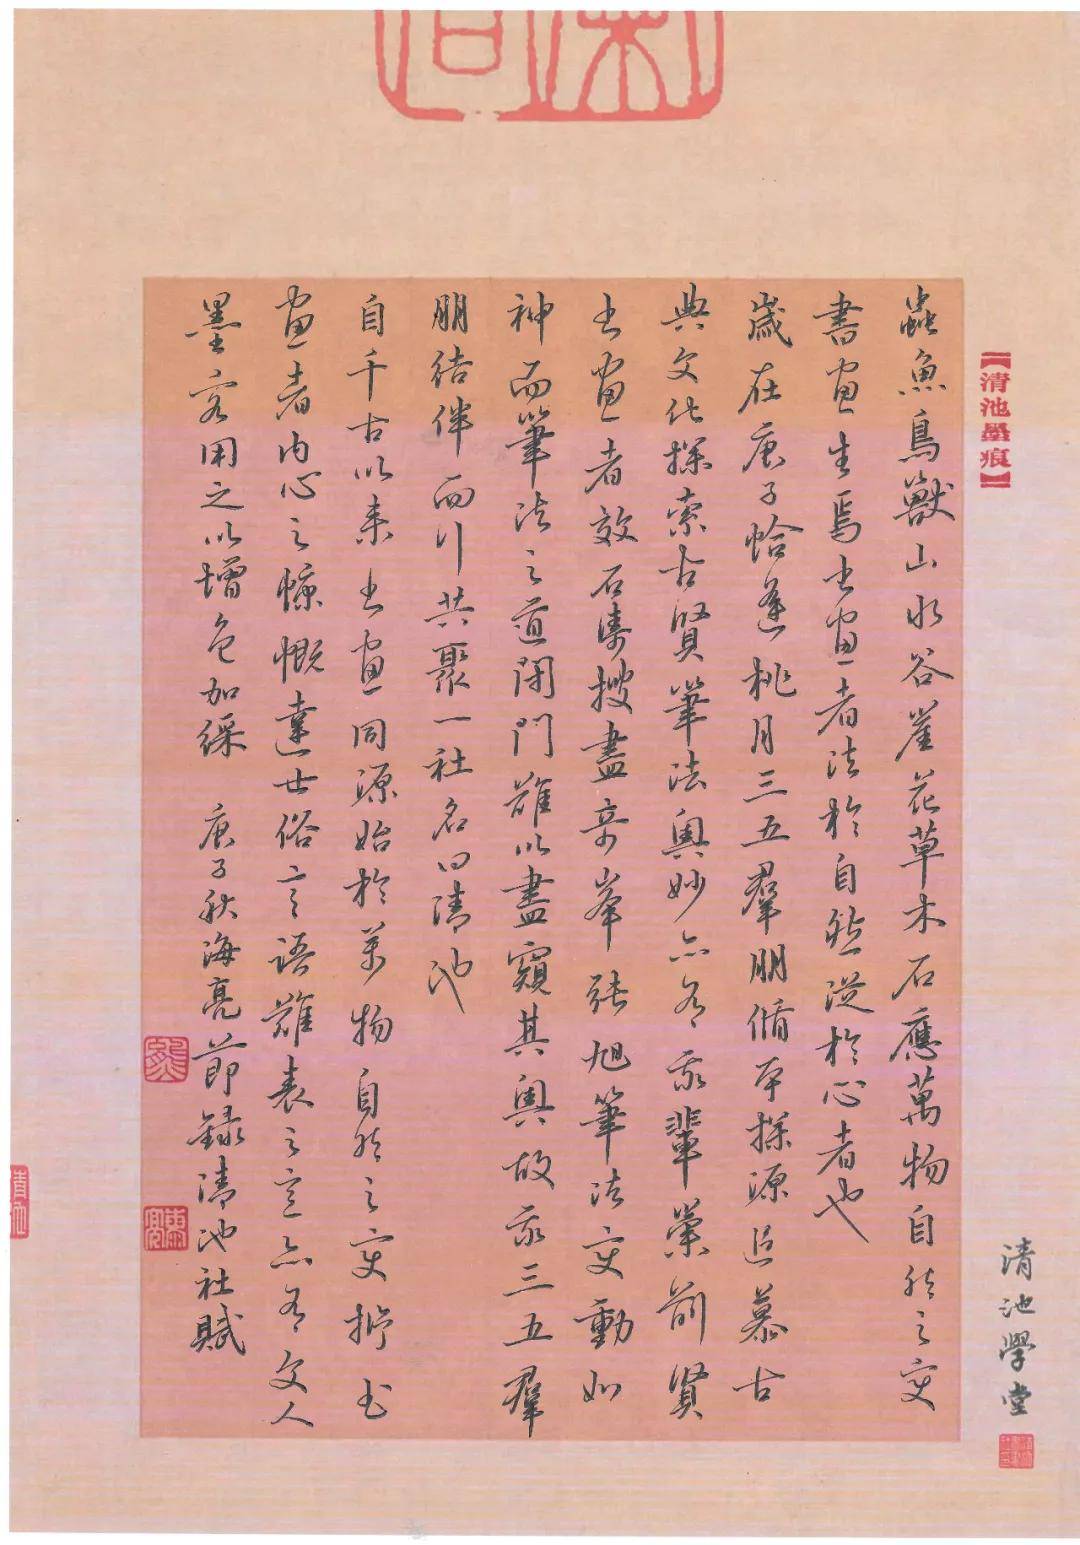 【清池墨痕】
清池學堂
蟲魚鳥獸山水谷崖花草木石應萬物自然之变
書畫生焉书畫者法於自然從於心者也
歲在庚子恰逢桃月三五羣朋脩平探源追慕古
典文化探索古賢筆法奧妙亦有我輩葉前賢
书畫者效石濤搜盡奇峯張旭筆法变動如
神而筆法之道閉門難以盡窺其奧故我三五羣
朋结伴而行共聚一社名曰清池
自千古以来书畫同源始於萬物自然之变抒书
畫者内心之慷慨達世俗言語難表之意亦有文人
墨客用之以增色加綵 庚子秋海亮節録清池社賦